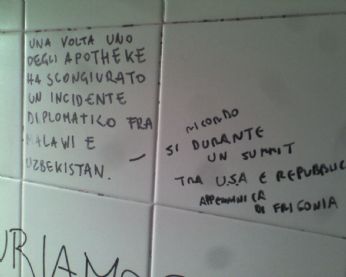 UNA VOLTA UNO
DEGLI APOTHEKE
HA SCONGIURATO
UN INCIDENTE
DIPLOMATICO FRA
MALAWI E
UZBEKISTAN.
— RICORDO
SI DURANTE
UN SUMMIT
TRA U.S.A E REPUBBLIC
APPENNINICA
DI FRIGONIA
URIAMO